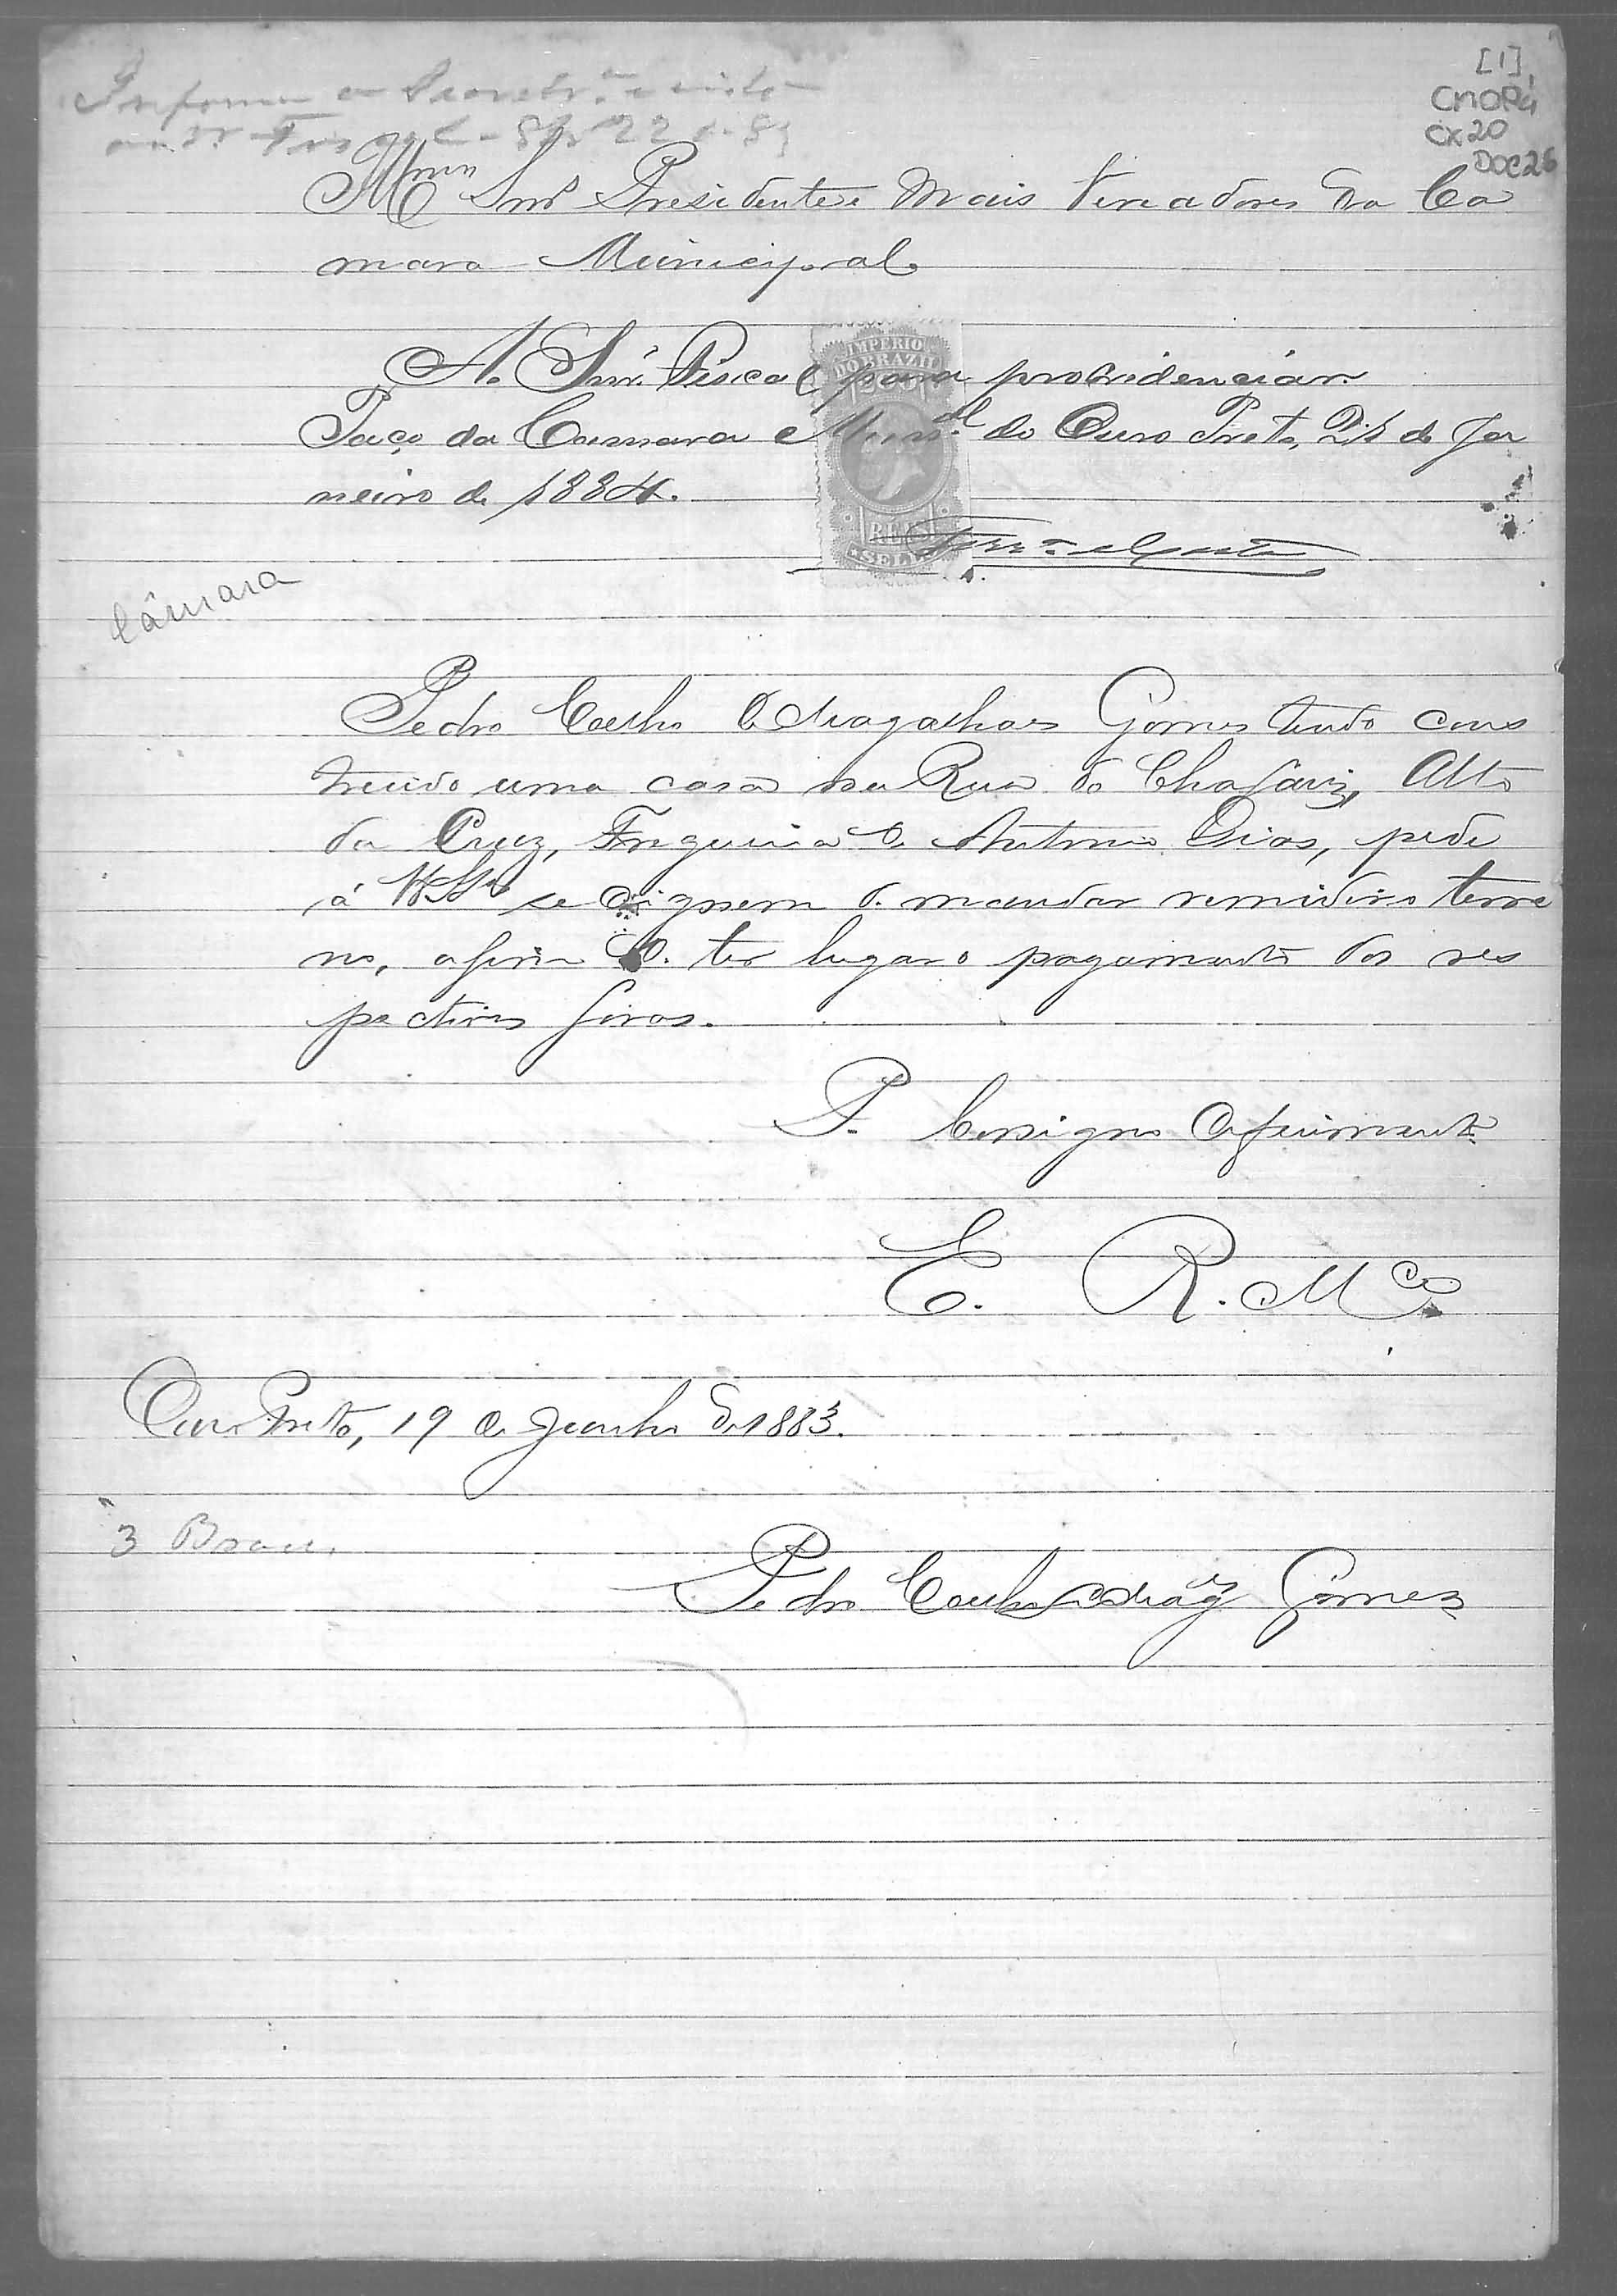 [1]
CMOP
CX20
DOC26
Informe a Secretr.ª e
Fiscal 22
Illmos Snrs Presidente e Mais Vereadores da Ca
mara Municipal
Ao Snr. Fiscal para providenciar.
Paço da Camara Munal. do Ouro Preto, 21 de Ja
neiro de 1884.
IMPERIO
DO BRAZIL
200
REIS
SELLO
Câmara
Pedro Coelho de Magalhães Gomes tendo cons
truido uma casa na Rua do Chafariz, Alto
da Cruz, Freguezia de Antonio Dias, pede
á VV.SSas se dignem de mandar remidir o terre
no, afim de ter lugar o pagamento dos res
pectivos foros.
P. benigno deferimento
E. R. Mce
Ouro Preto, 19 de Junho de 1883.
3
Pedro Coelho de Mages Gomes